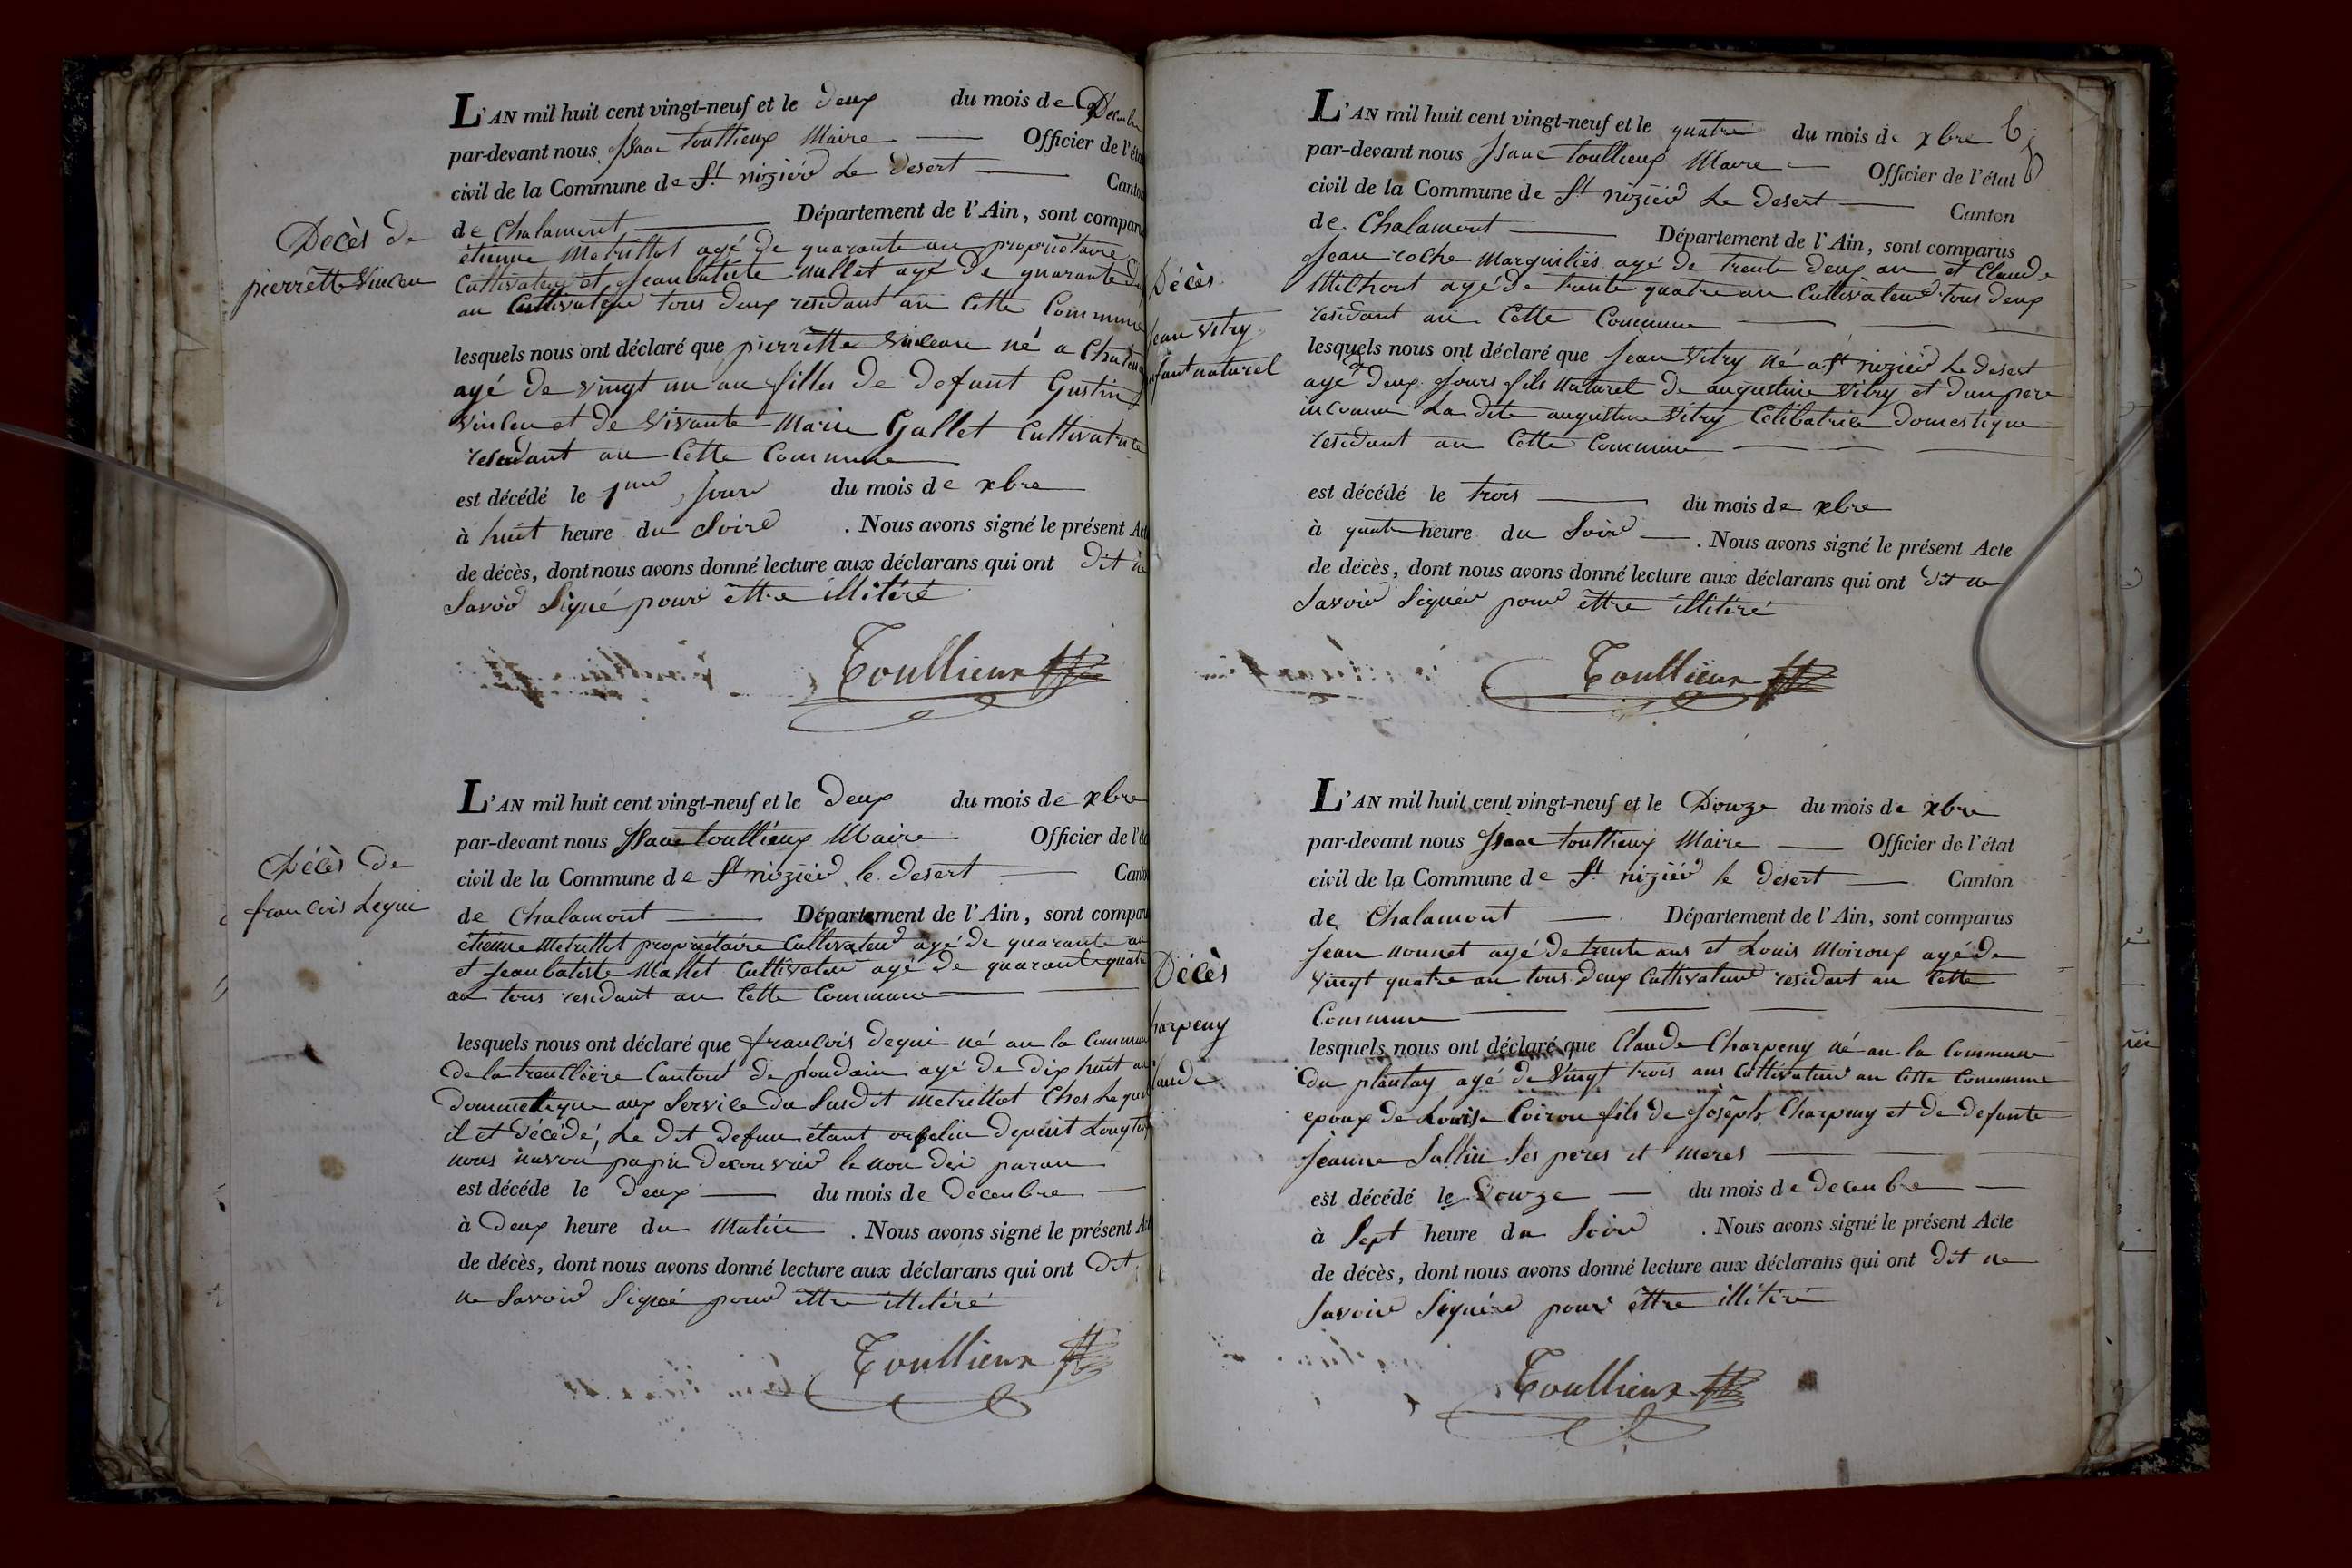 L'AN mil huit cent vingt-neuf et le deux du mois de Décembre
par-devant nous Isaac toullieux Maire Officier de l'état
civil de la Commune de St niziér Le Desert Canton
de Chalamont Département de l'Ain, sont comparu
Decès de
pierrette Vinceu
étienne Metrillot agé de quarante an propriétaire
Cultivateur et Jean batiste Mallet agé de quarante
an Cultivateur tous deux residant an Cette Commune
lesquels nous ont déclaré que pierrette né a
agé de vingt un an filles de defunt Gustin
et de Vivante Marie Gallet Cultivatrice
residant an Cette Commune
est décédé le 1mer Jour du mois de xbre
à huit heure du Soire . Nous avons signé le présent Acte
de décès, dont nous avons donné lecture aux déclarans qui ont Dit ne
Savoir Signé pour ettre illitéré
Toullieux
L'AN mil huit cent vingt-neuf et le Deux du mois de xbre
par-devant nous Isaac toullieux Maire Officier de l'éta
civil de la Commune de St niziér le desert Canton
de Chalamont Département de l'Ain, sont comparu
Décès de
francois
étienne Metrillot propriétaire Cultivateur agé de quarante an
et Jean batiste Mallet Cultivateur agé de quarante quatre
an tous residant an Cette Commune
lesquels nous ont déclaré que francois né an la Commune
De la Cantont de agé de Dix huit an
Dommestique aux Service Du Susdit Metrillot Ches Le quel
il et Décédé, Le Dit Defun étant orfelin Depuit Longtems
nous navon pa pu Decouvrir le non paran
est décédé le Deux du mois de Decenbre
à Deux heure du Matin . Nous avons signé le présent Act
de décès, dont nous avons donné lecture aux déclarans qui ont Dit
ne Savoir Signé pour ettre illitéré
Toullieux
L'AN mil huit cent vingt-neuf et le quatre du mois de xbre
par-devant nous Isaac toullieux Maire Officier de l'état
civil de la Commune de St niziér Le Desert Canton
de Chalamont Département de l'Ain, sont comparus
Décès
Jean Vitry
enfant naturel
Jean roche Marguiliés agé de trente Deux an et Claude
agé De trente quatre an Cultivateur tous deux
residant an Cette Commune
lesquels nous ont déclaré que Jean Vitry né a St niziér Le Desert
agé Deux Jours fils naturel de augustine Vitry et dun pere
inconnu La dite augustine Vitry Celibatrice Domestique
residant an Cette Commune
est décédé le trois du mois de xbre
à quatre heure du Soire . Nous avons signé le présent Acte
de décès, dont nous avons donné lecture aux déclarans qui ont Dit ne
Savoir Signér pour ettre illitéré
Toullieux
L'AN mil huit cent vingt-neuf et le Douze du mois de xbre
par-devant nous Isaac toullieux Maire Officier de l'état
civil de la Commune de St niziér le desert Canton
de Chalamont Département de l'Ain, sont comparus
Décès
harpeny
laude
Jean nonnet agé de trente ans et Louis Moiroux agé de
Vingt quatre an tous Deux Cultivateur residant an Cette
Commune
lesquels nous ont déclaré que Claude Charpeny né an la Commune
du plantay agé de Vingt trois ans Cultivateur an Cette Commune
epoux de Louise Coiron fils de Joseph Charpeny et de defunte
Jeanne Sallin Ses peres et meres
est décédé le Douze du mois de Decenbre
à Sept heure du Soire . Nous avons signé le présent Acte
de décès, dont nous avons donné lecture aux déclarans qui ont Dit ne
Savoir Signér pour ettre illitéré
Toullieux